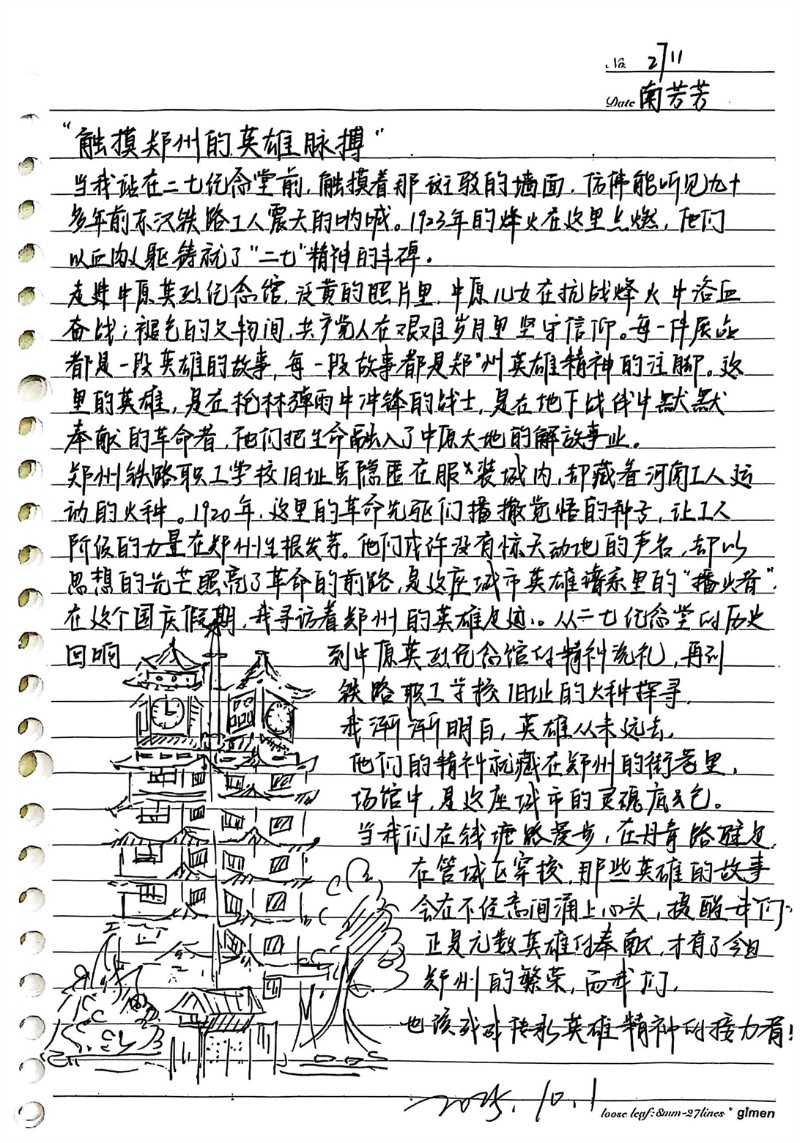 No. 2711
Date 南芳芳
"触摸郑州的英雄脉搏"
当我站在二七纪念堂前，触摸着那斑驳的墙面，仿佛能听见九十
多年前京汉铁路工人震天的呐喊。1923年的烽火在这里点燃，他们
以血肉之躯铸就了"二七"精神的丰碑。
走进中原英烈纪念馆，泛黄的照片里，中原儿女在抗战烽火中浴血
奋战；褪色的文物间，共产党人在艰难岁月里坚守信仰。每一件展品
都是一段英雄的故事，每一段故事都是郑州英雄精神的注脚。这
里的英雄，是在枪林弹雨中冲锋的战士，是在地下战线中默默
奉献的革命者，他们把生命融入了中原大地的解放事业。
郑州铁路职工学校旧址虽隐匿在服装城内，却藏着河南工人运
动的火种。1920年，这里的革命先驱们播撒觉悟的种子，让工人
阶级的力量在郑州生根发芽。他们或许没有惊天动地的声名，却以
思想的光芒照亮了革命的前路，是这座城市英雄谱系里的"播火者"。
在这个国庆假期，我寻访着郑州的英雄足迹。从二七纪念堂的历史
回响 到中原英烈纪念馆的精神洗礼，再到
铁路职工学校旧址的火种探寻，
我渐渐明白，英雄从未远去，
他们的精神就藏在郑州的街巷里，
场馆中，是这座城市的灵魂底色。
当我们在钱塘路漫步，在丹青路驻足，
在管城区穿梭，那些英雄的故事
会在不经意间涌上心头，提醒我们：
正是无数英雄的奉献，才有了今日
郑州的繁荣，而我们，
也该成为传承英雄精神的接力者！
2025.10.1
loose leaf:8mm-27lines * glmen